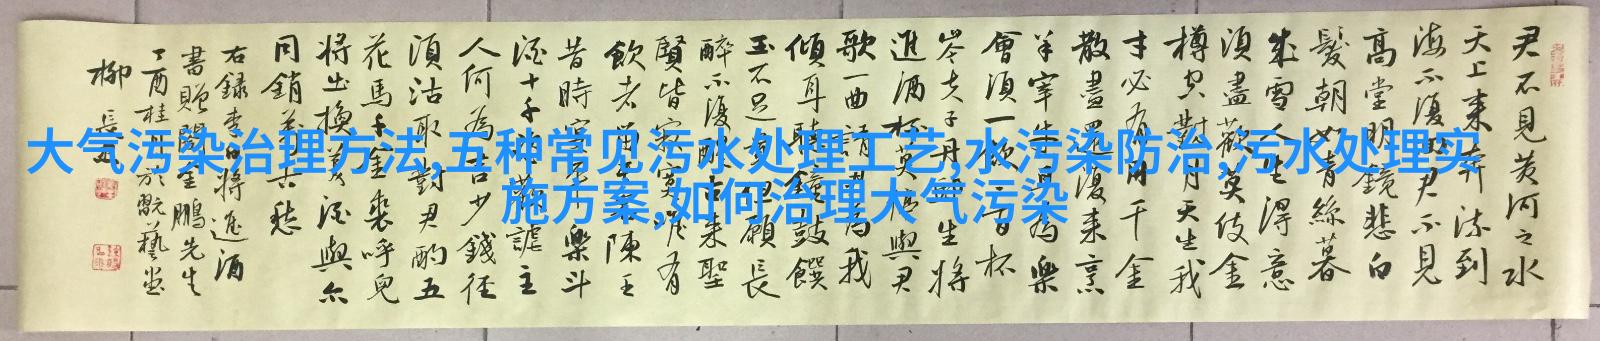 大气污染治理方法,五种常见污水处理工艺,水污染防治,污水处理实
施方案,如何治理大气污染
君不見黃河之水
天上來奔流到
海不復回君不見
高堂明鏡悲白
髮朝如青絲暮
成雪人生得意
須盡歡莫使金
樽空對月天生我
才必有用千金
散盡還復來烹
羊宰牛且為樂
會須一飲三百杯
岑夫子丹丘生將
進酒杯莫停與君
歌一曲請君為我
傾耳聽鐘鼓饌
玉不足貴但願長
醉不復醒古來聖
賢皆寂寞惟有
飲者留其名陳王
昔時宴平樂斗
酒十千恣歡謔主
人何為言少錢徑
須沽取對君酌五
花馬千金裘呼兒
將出換美酒與尔
同銷萬古愁
右錄李白將進酒
書贈金鵬先生
丁酉桂月於翫藝堂
柳長